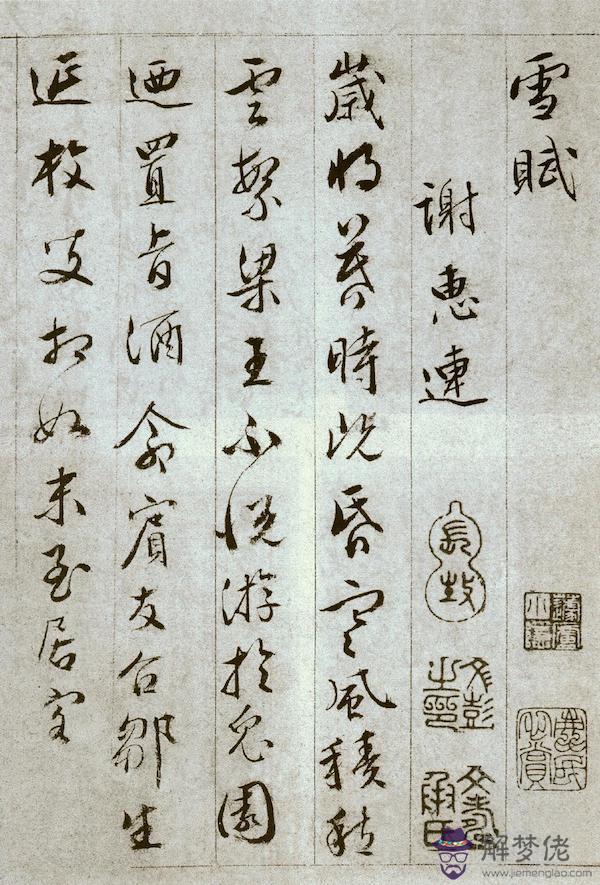 雪賦
謝惠連
歲將暮時既昏寒風積愁
雲繁梁王不悅游於兔園
迺置旨酒命賓友召鄒生
延枚叟相如末至居客
文彭之印
解梦佬
www.jiemenglao.com